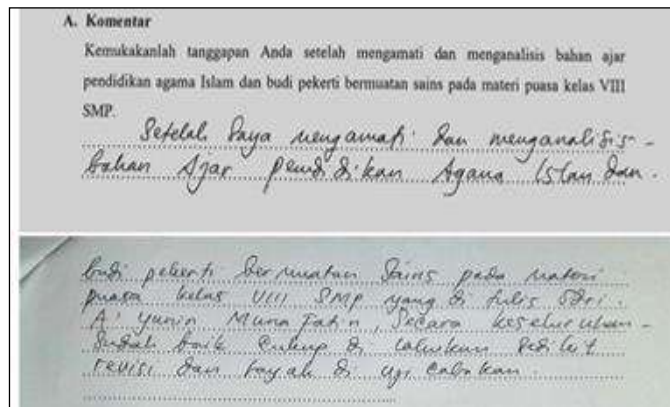 A. Komentar
Kemukakanlah tanggapan Anda setelah mengamati dan menganalisis bahan ajar
pendidikan agama Islam dan budi pekerti bermuatan sains pada materi puasa kelas VIII
SMP.
Setelah saya mengamati dan menganalisis
bahan Ajar pendidikan Agama Islam dan
budi pekerti bermuatan Sains pada materi
puasa kelas VIII SMP yang di tulis Sdri.
A'yunin Muna, Secara keseluruhan
Sudah baik cukup di lakukan sedikit
revisi dan layak di uji cobakan.